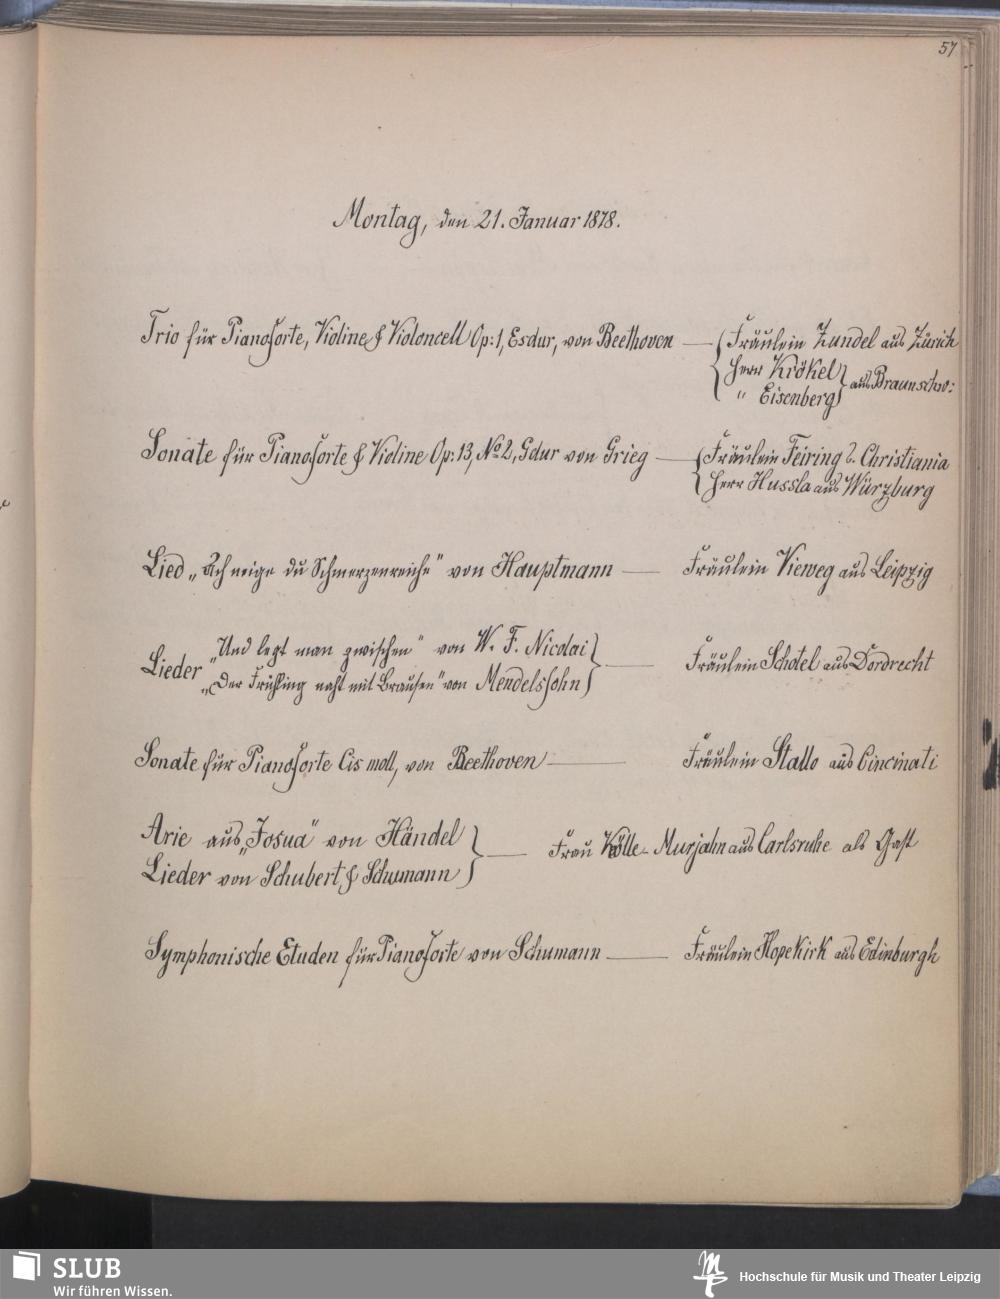 57
Montag, den 21. Januar 1878.
Trio für Pianoforte, Violine & Violoncell Op: 1, Esdur, von Beethoven — Fräulein Zundel aus Zürich
Herr Krökel
" Eisenberg } aus Braunschw:
Sonate für Pianoforte & Violine Op: 13, No 2, Gdur von Grieg — Fräulein Feiring a. Christiania
Herr Hussla aus Würzburg
Lied „Ach neige du Schmerzenreiche" von Hauptmann — Fräulein Vieweg aus Leipzig
Lieder „Und legt man zwischen" von W. F. Nicolai
„Der Frühling naht mit Brausen" von Mendelssohn } — Fräulein Schotel aus Dordrecht
Sonate für Pianoforte Cis moll, von Beethoven — Fräulein Stallo aus Cincinati
Arie aus „Josua" von Händel
Lieder von Schubert & Schumann } — Frau Kölle-Murjahn aus Carlsruhe als Gast
Symphonische Etuden für Pianoforte von Schumann — Fräulein Hopekirk aus Edinburgh
SLUB
Wir führen Wissen.
Hochschule für Musik und Theater Leipzig